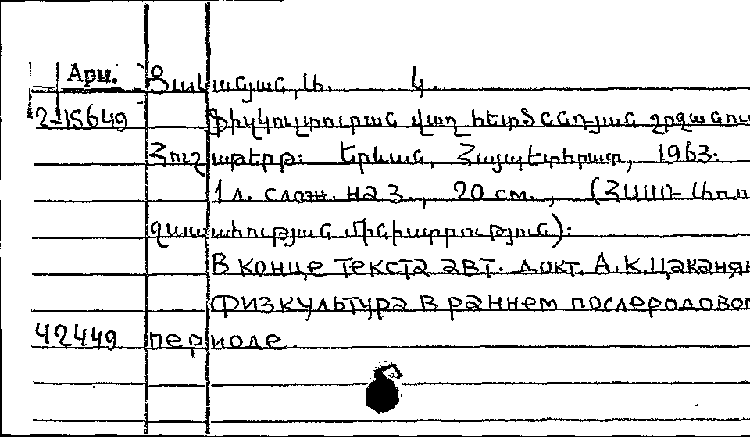 Арм. Ցականյան, Ա. Կ.
2-15649 Ֆիզկուլտուրան վաղ հետծննդյան շրջանում
Հուշաթերթ: Երևան, Հայպետհրատ, 1963.
1 л. слож. на 3, 20 см., (ՀՍՍՌ Առող
զապահության մինիստրություն):
В конце текста авт. докт. А. К. Цаканян
Физкультура в раннем послеродовом
42449 периоде.